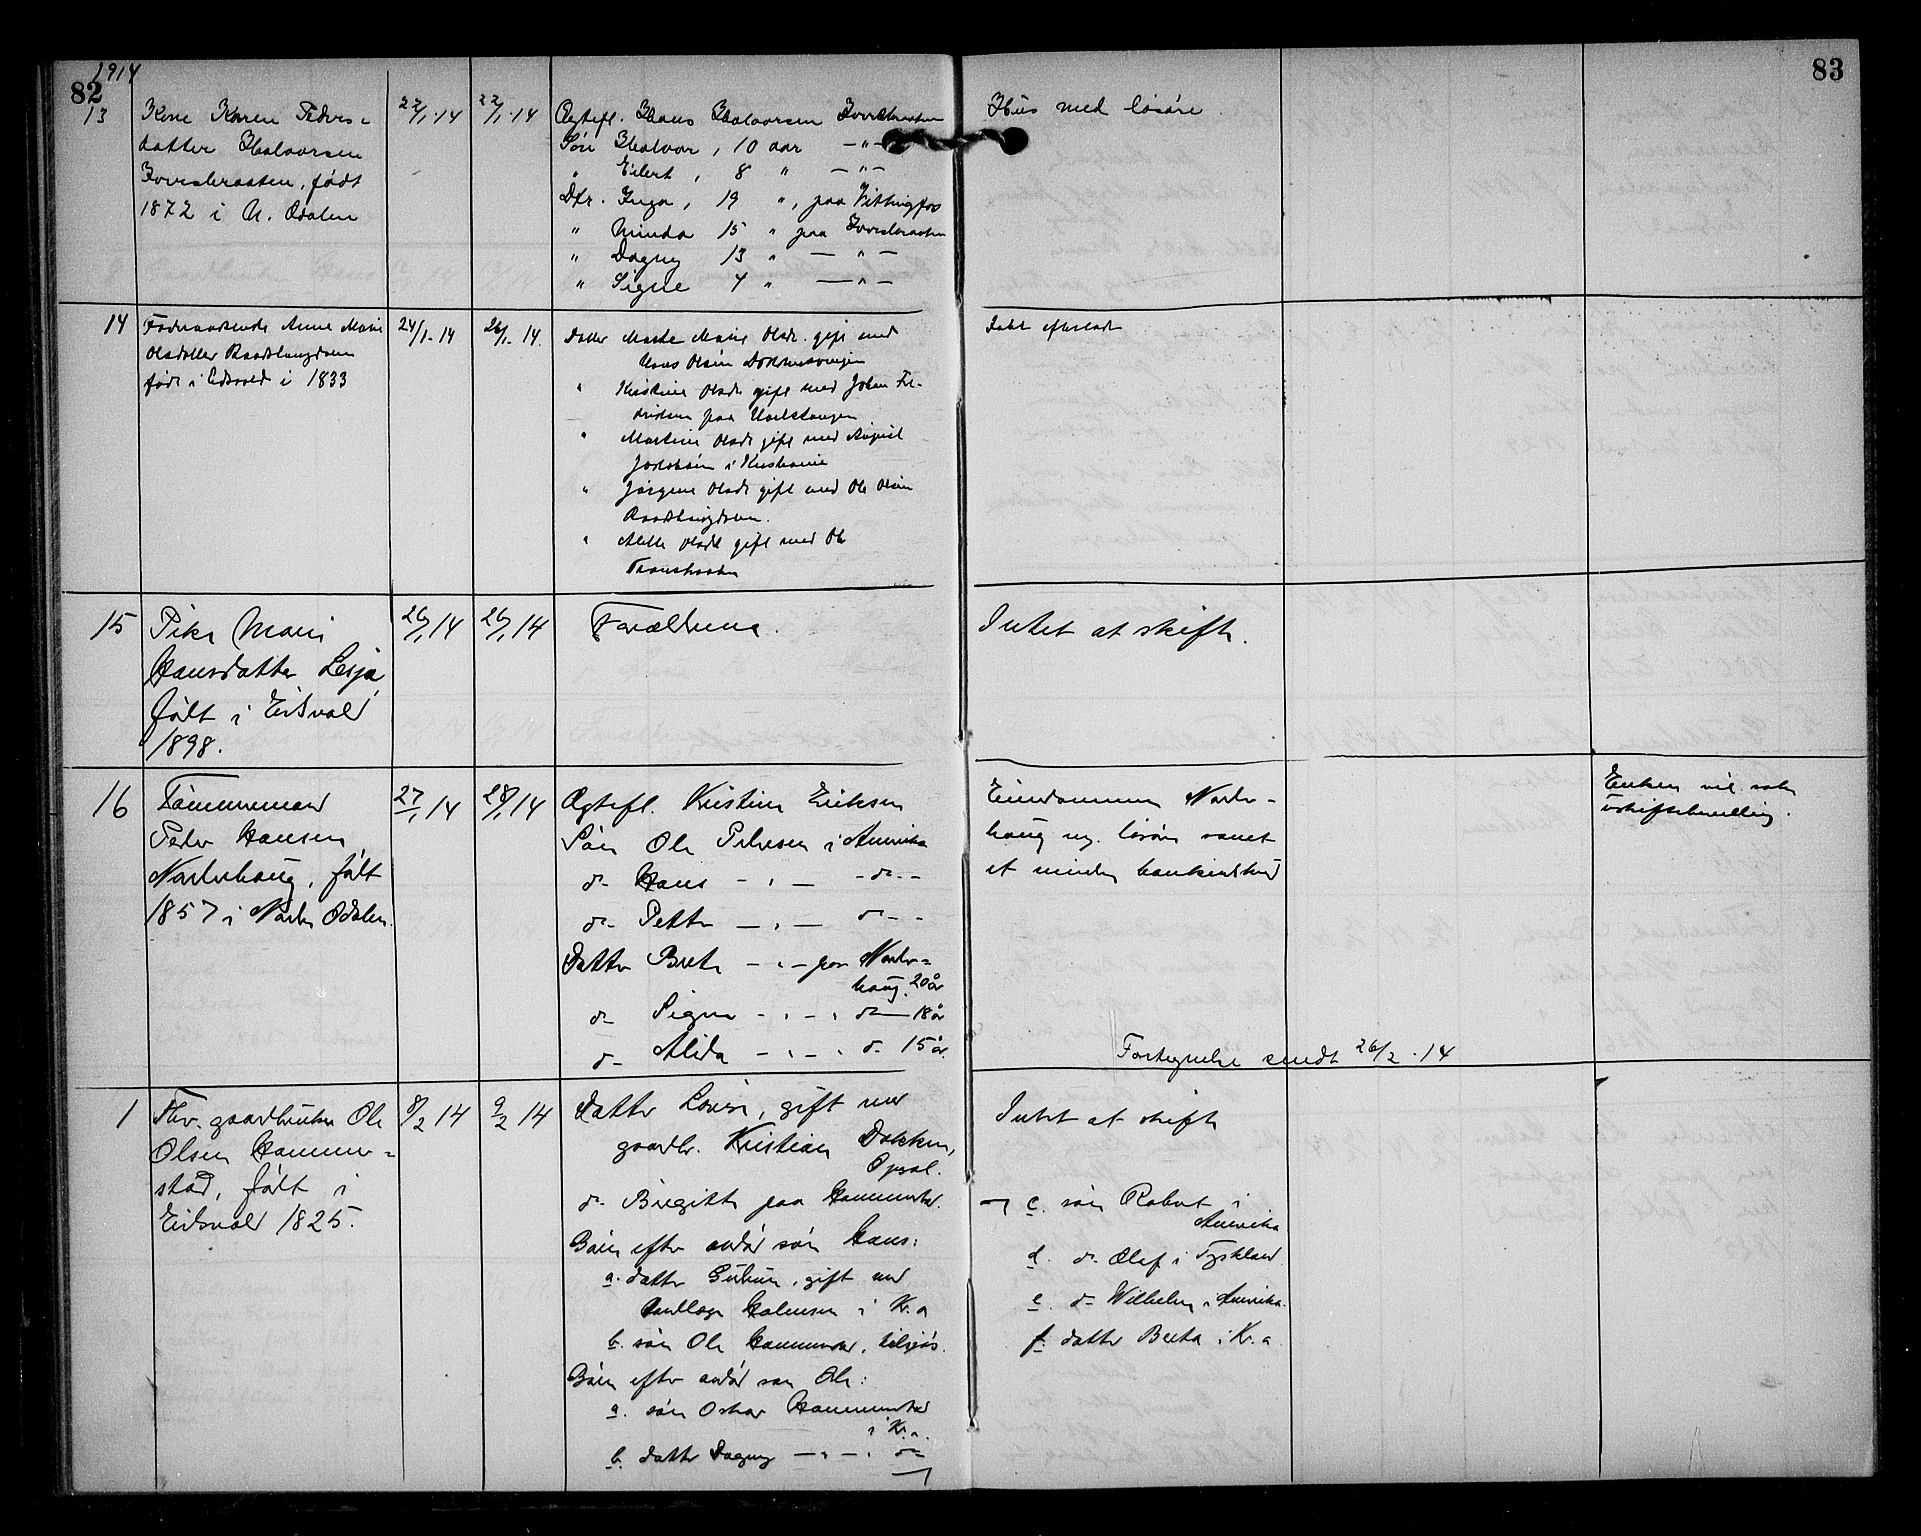 1914
82
83
13
Kone Karen Peders-
datter Halvorsen
født
1872 i N. Odalen
22/1 - 14
22/1 - 14
Ægtefl. Hans Halvorsen
Søn Halvor, 10 aar — " —
" Eilert, 8 " — " —
Dtr. Inga, 19 ", paa Vittingfos
" Minda 15 " paa
" Dagny 13 " — " —
" Signe 4 " — " —
Hus med løsøre
14
Føderaadsenke Anne Marie
Olsdatter
født i Eidsvold i 1833
24/1 - 14
26/1 - 14.
Datter Marthe Marie Olsdt. gift med
Hans Olsen
" Kristine Olsdt gift med Johan
paa
" Martine Olsdt gift med August
Jacobsen i Kristiania
" Jørgine Olsdt gift med Ole Olsen
" Olsdt gift med Ole
Intet efterladt
15
Pike Marie
Hansdatter Lesja
født i Eidsvold
1898.
26/1 14
26/1 14
Forældrene.
Intet at skifte.
16
Tømmermand
Peder Hansen
Norderhaug, født
1857 i Nordre Odalen.
27/1 14
28/1 14
Ægtefl. Kristine Eriksen
Søn Ole Pedersen i Amerika
do Hans — " — - do -
do Petter — " — do -
Datter Berte — " — paa Norder-
haug. 20 år
do Signe - " - " do — 18 år
do Alida - " - " do 15 år.
Eiendommen Norder-
haug og løsøre samt
et mindre bankindskud
Enken vil søke
uskiftebevilling.
Fortegnelse sendt 26/2 - 14
1
Fhv. gaardbruker Ole
Olsen Hammer-
stad, født i
Eidsvold 1825.
8/2 14
9/2 14
Datter Lovise, gift med
gaardbr. Kristian Dokken,
Opsal.
do Birgitte paa Hammerstad.
Børn efter avdød søn Hans:
a. datter gift med
Holmsen i Kr.a
b. søn Ole Hammerstad, tilsjøs.
Børn efter avdød søn Ole:
a. søn Oskar Hammerstad
i Kr.a.
b. datter Dagny — " — " do
Intet at skifte
c. søn Robert i
Amerika
d. do Olaf i Tyskland
e. do Wilhelm i Amerika.
f. datter Berta i Kr.a